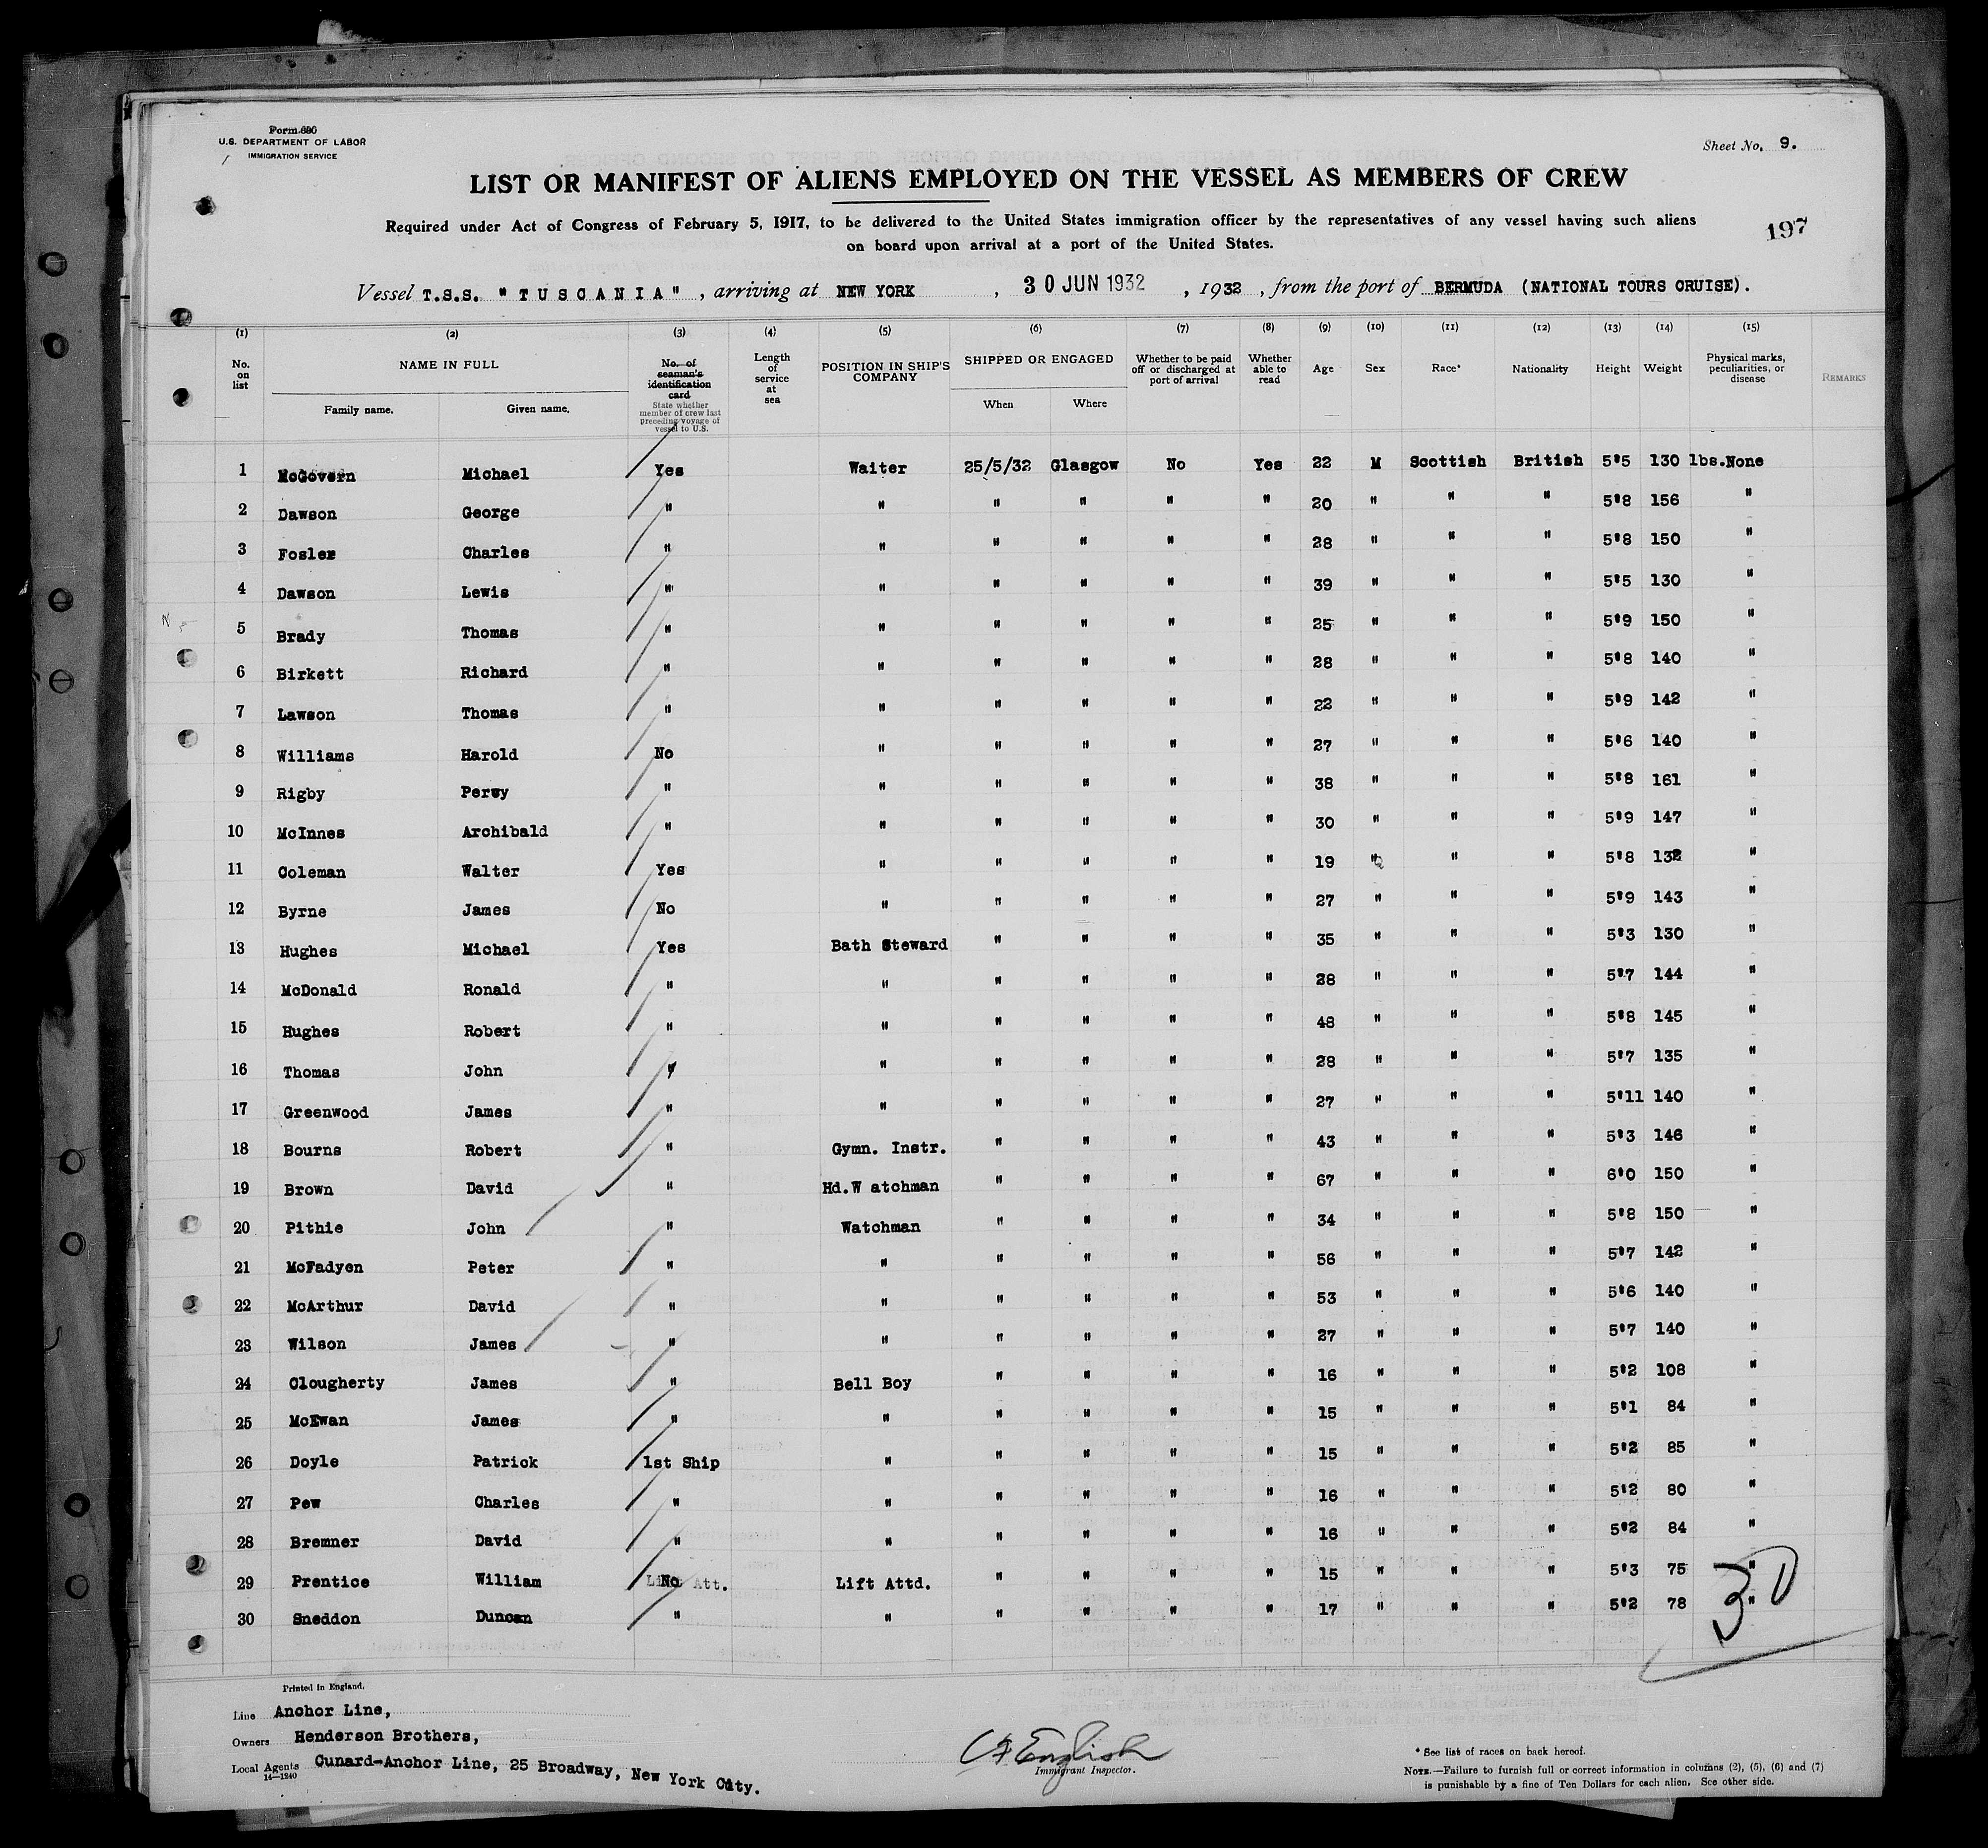 Form 680
U.S. DEPARTMENT OF LABOR
IMMIGRATION SERVICE
Sheet No. 9.
LIST OR MANIFEST OF ALIENS EMPLOYED ON THE VESSEL AS MEMBERS OF CREW
Required under Act of Congress of February 5, 1917, to be delivered to the United States immigration officer by the representatives of any vessel having such aliens
on board upon arrival at a port of the United States.
197
Vessel T.S.S. "TUSCANIA", arriving at NEW YORK, 30 JUN 1932, 1932, from the port of BERMUDA (NATIONAL TOURS CRUISE).
(1) (2) (3) (4) (5) (6) (7) (8) (9) (10) (11) (12) (13) (14) (15)
No. on list NAME IN FULL Family name. Given name. No. of seaman's identification card State whether member of crew last preceding voyage of vessel to U.S. Length of service at sea POSITION IN SHIP'S COMPANY SHIPPED OR ENGAGED When Where Whether to be paid off or discharged at port of arrival Whether able to read Age Sex Race* Nationality Height Weight Physical marks, peculiarities, or disease REMARKS
1 McGovern Michael Yes Waiter 25/5/32 Glasgow No Yes 22 M Scottish British 5'5 130 lbs. None
2 Dawson George " " " " " " 20 " " " 5'8 156 "
3 Fosler Charles " " " " " " 28 " " " 5'8 150 "
4 Dawson Lewis " " " " " " 39 " " " 5'5 130 "
5 Brady Thomas " " " " " " 25 " " " 5'9 150 "
6 Birkett Richard " " " " " " 28 " " " 5'8 140 "
7 Lawson Thomas " " " " " " 22 " " " 5'9 142 "
8 Williams Harold No " " " " " 27 " " " 5'6 140 "
9 Rigby Percy " " " " " " 38 " " " 5'8 161 "
10 McInnes Archibald " " " " " " 30 " " " 5'9 147 "
11 Coleman Walter Yes " " " " " 19 " " " 5'8 132 "
12 Byrne James No " " " " " 27 " " " 5'9 143 "
13 Hughes Michael Yes Bath Steward " " " " 35 " " " 5'3 130 "
14 McDonald Ronald " " " " " " 28 " " " 5'7 144 "
15 Hughes Robert " " " " " " 48 " " " 5'8 145 "
16 Thomas John " " " " " " 28 " " " 5'7 135 "
17 Greenwood James " " " " " " 27 " " " 5'11 140 "
18 Bourns Robert " Gymn. Instr. " " " " 43 " " " 5'3 146 "
19 Brown David " Hd.W atchman " " " " 67 " " " 6'0 150 "
20 Pithie John " Watchman " " " " 34 " " " 5'8 150 "
21 McFadyen Peter " " " " " " 56 " " " 5'7 142 "
22 McArthur David " " " " " " 53 " " " 5'6 140 "
23 Wilson James " " " " " " 27 " " " 5'7 140 "
24 Clougherty James " Bell Boy " " " " 16 " " " 5'2 108 "
25 McEwan James " " " " " " 15 " " " 5'1 84 "
26 Doyle Patrick 1st Ship " " " " " 15 " " " 5'2 85 "
27 Pew Charles " " " " " " 16 " " " 5'2 80 "
28 Bremner David " " " " " " 16 " " " 5'2 84 "
29 Prentice William No Lift Attd. " " " " 15 " " " 5'3 75 "
30 Sneddon Duncan " " " " " " 17 " " " 5'2 78 "
30
Printed in England.
Line Anchor Line,
Owners Henderson Brothers,
Local Agents Cunard-Anchor Line, 25 Broadway, New York City.
14—1240
English
Immigrant Inspector.
* See list of races on back hereof.
NOTE.—Failure to furnish full or correct information in columns (2), (5), (6) and (7)
is punishable by a fine of Ten Dollars for each alien. See other side.